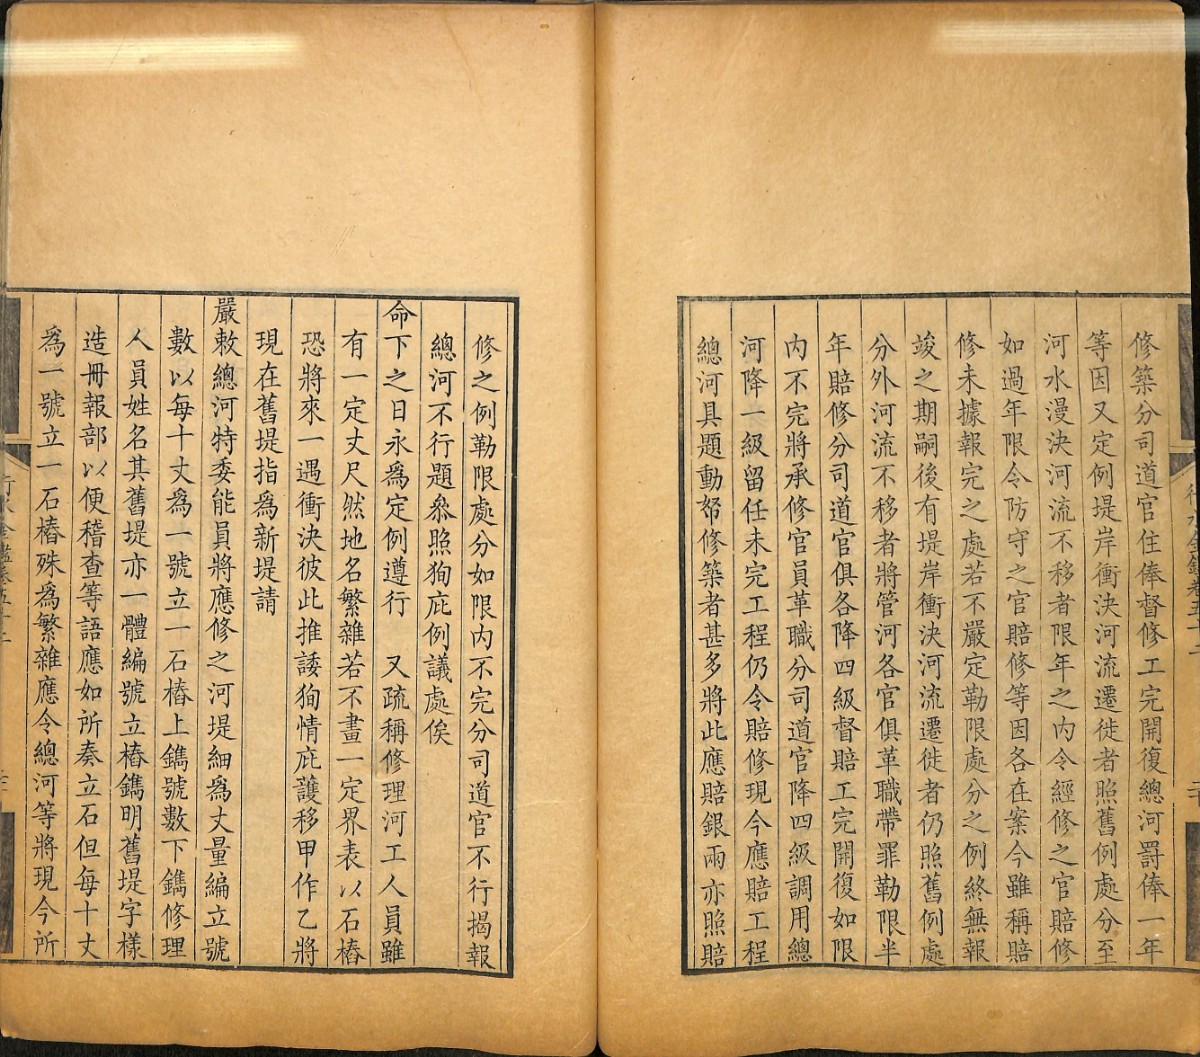 修築分司道官住俸督修工完開復總河罰俸一年
等因又定例堤岸衝決河流遷徙者照舊例處分至
河水漫決河流不移者限年之內令經修之官賠修
如過年限令防守之官賠修等因各在案今雖稱賠
修未據報完之處若不嚴定勒限處分之例終無報
竣之期嗣後有堤岸衝決河流遷徙者仍照舊例處
分外河流不移者將管河各官俱革職帶罪勒限半
年賠修分司道官俱各降四級督賠工完開復如限
內不完將承修官員革職分司道官降四級調用總
河降一級留任未完工程仍令賠修現今應賠工程
總河具題動帑修築者甚多將此應賠銀兩亦照賠
修之例勒限處分如限內不完分司道官不行揭報
總河不行題叅照狥庇例議處俟
命下之日永為定例遵行 又疏稱修理河工人員雖
有一定丈尺然地名繁雜若不畫一定界表以石樁
恐將來一遇衝決彼此推諉狥情庇護移甲作乙將
現在舊堤指為新堤請
嚴敕總河特委能員將應修之河堤細為丈量編立號
數以每十丈為一號立一石樁上鐫號數下鐫修理
人員姓名其舊堤亦一體編號立樁鐫明舊堤字樣
造冊報部以便稽查等語應如所奏立石但每十丈
為一號立一石樁殊為繁雜應令總河等將現今所